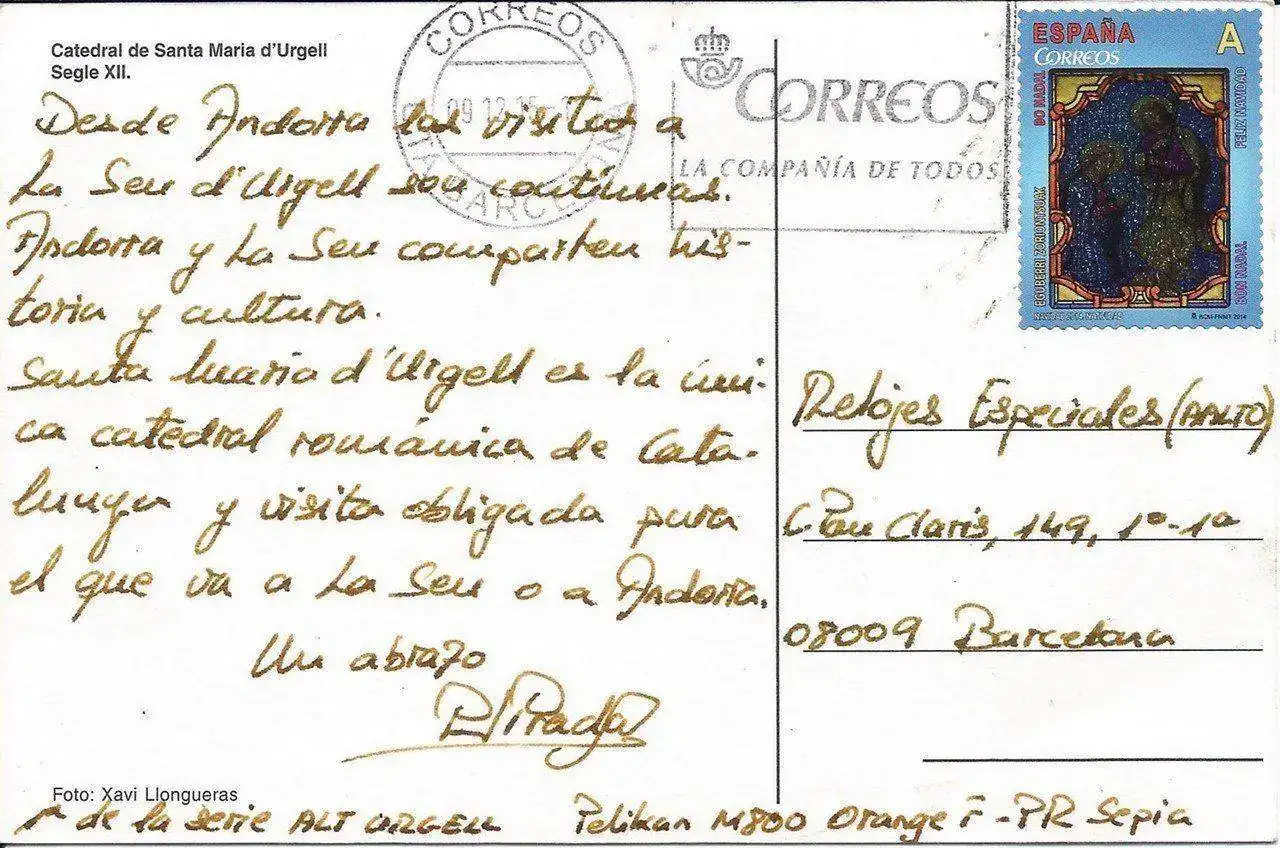 Catedral de Santa Maria d'Urgell
Segle XII.
Desde Andorra las visitas a
La Seu d'Urgell son continuas.
Andorra y La Seu comparten his-
toria y cultura.
Santa Maria d'Urgell es la úni-
ca catedral románica de Cata-
lunya y visita obligada para
el que va a La Seu o a Andorra.
Un abrazo
Prada
Foto: Xavi Llongueras
1ª de la serie ALT URGELL
Pelikan M800 Orange F - PR Sepia
CORREOS
09 12 15
BARCELONA
CORREOS
LA COMPAÑÍA DE TODOS
ESPAÑA A
CORREOS
BO NADAL
FELIZ NAVIDAD
EGUBERRI ZORIONTSUAK
BON NADAL
RCM-FNMT 2014
Relojes Especiales (AALTO)
C. Pau Claris, 149, 1º-1ª
08009 Barcelona